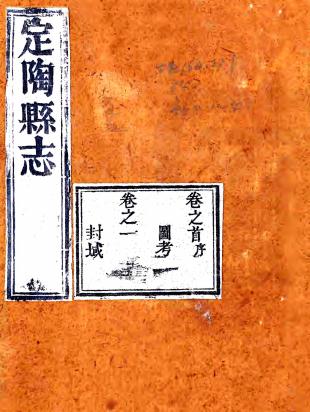 定陶縣志
卷之首 序
圖考
卷之一
封域